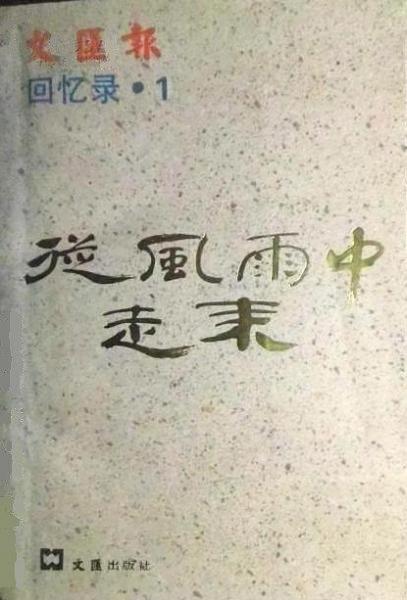 文匯報
回忆录·1
從風雨中
走来
文匯出版社